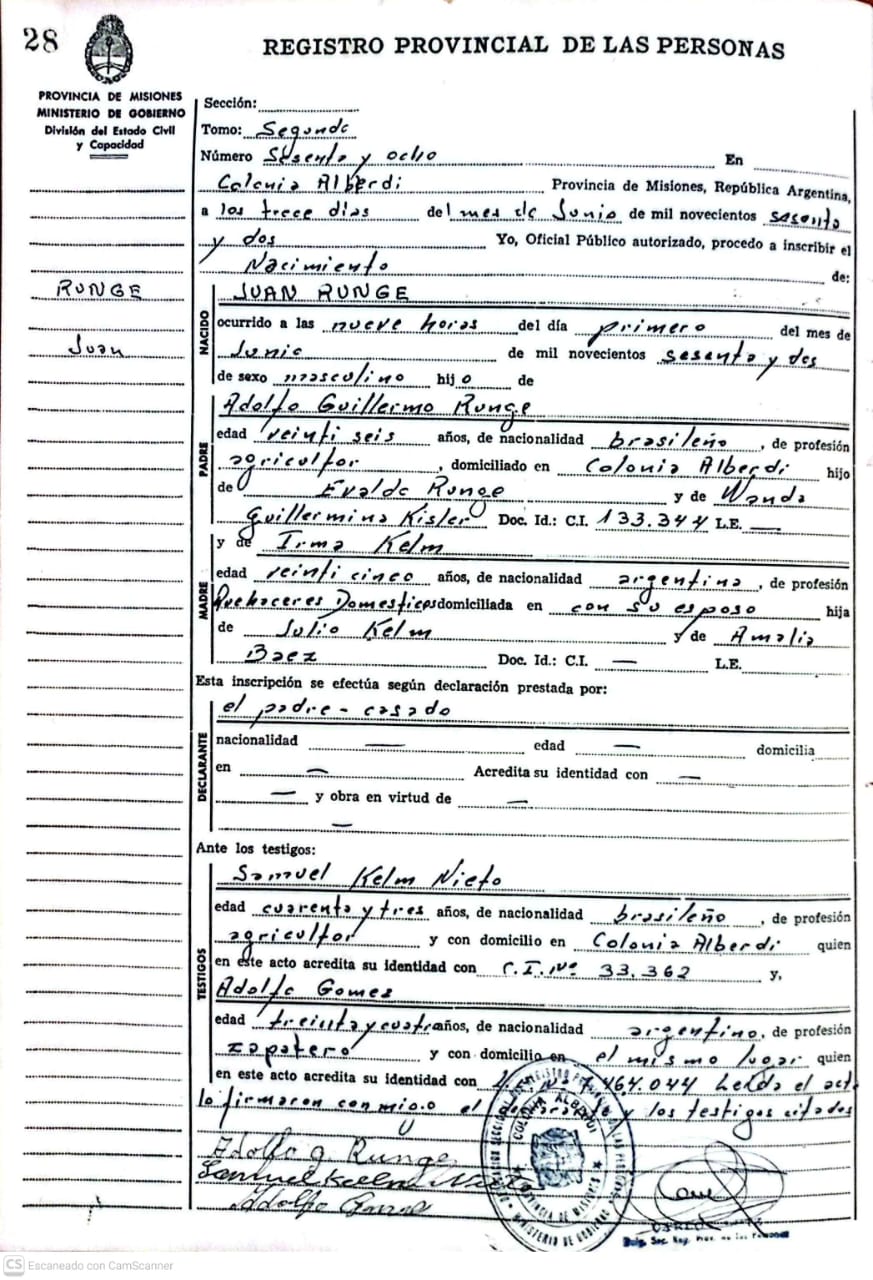 28
REGISTRO PROVINCIAL DE LAS PERSONAS
PROVINCIA DE MISIONES
MINISTERIO DE GOBIERNO
División del Estado Civil
y Capacidad
RUNGE
Juan
Sección:
Tomo: Segundo
Número Sesenta y ocho En
Colonia Alberdi Provincia de Misiones, República Argentina,
a los trece días del mes de Junio de mil novecientos sesenta
y dos Yo, Oficial Público autorizado, procedo a inscribir el
Nacimiento de:
NACIDO
JUAN RUNGE
ocurrido a las nueve horas del día primero del mes de
Junio de mil novecientos sesenta y dos
de sexo masculino hijo de
PADRE
Adolfo Guillermo Runge
edad veinti seis años, de nacionalidad brasileño, de profesión
agricultor, domiciliado en Colonia Alberdi hijo
de Evaldo Runge y de Wanda
Guillermina Kisler Doc. Id.: C.I. 133.344 L.E. —
y de Irma Kelm
MADRE
edad veinti cinco años, de nacionalidad argentina, de profesión
Quehaceres Domesticos domiciliada en con su esposo hija
de Julio Kelm y de Amalia
Baez Doc. Id.: C.I. — L.E.
Esta inscripción se efectúa según declaración prestada por:
el padre - casado
DECLARANTE
nacionalidad — edad — domicilia
en — Acredita su identidad con —
— y obra en virtud de —
—
Ante los testigos:
Samuel Kelm Nieto
TESTIGOS
edad cuarenta y tres años, de nacionalidad brasileño, de profesión
agricultor y con domicilio en Colonia Alberdi quien
en este acto acredita su identidad con C.I. Nº 33.362 y,
Adolfo Gomes
edad treinta y cuatro años, de nacionalidad argentino, de profesión
zapatero y con domicilio en el mismo lugar quien
en este acto acredita su identidad con 464.044 Leída el acta
la firmaron conmigo el declarante y los testigos citados
Adolfo G. Runge
Samuel Kelm Nieto
Adolfo Gomes
COLONIA ALBERDI
PROVINCIA DE MISIONES
MINISTERIO DE GOBIERNO
CS Escaneado con CamScanner